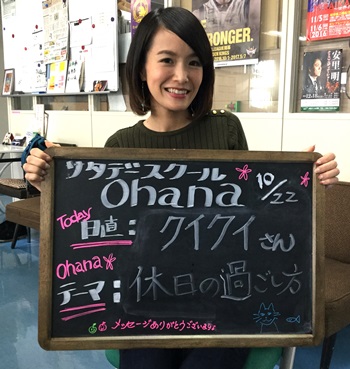 RONGER.
11/5
11/6
2016
サタデースクール
Ohana 10/22
Today
日直:クイクイさん
Ohana
テーマ:休日の過ごし方
メッセージありがとうございます